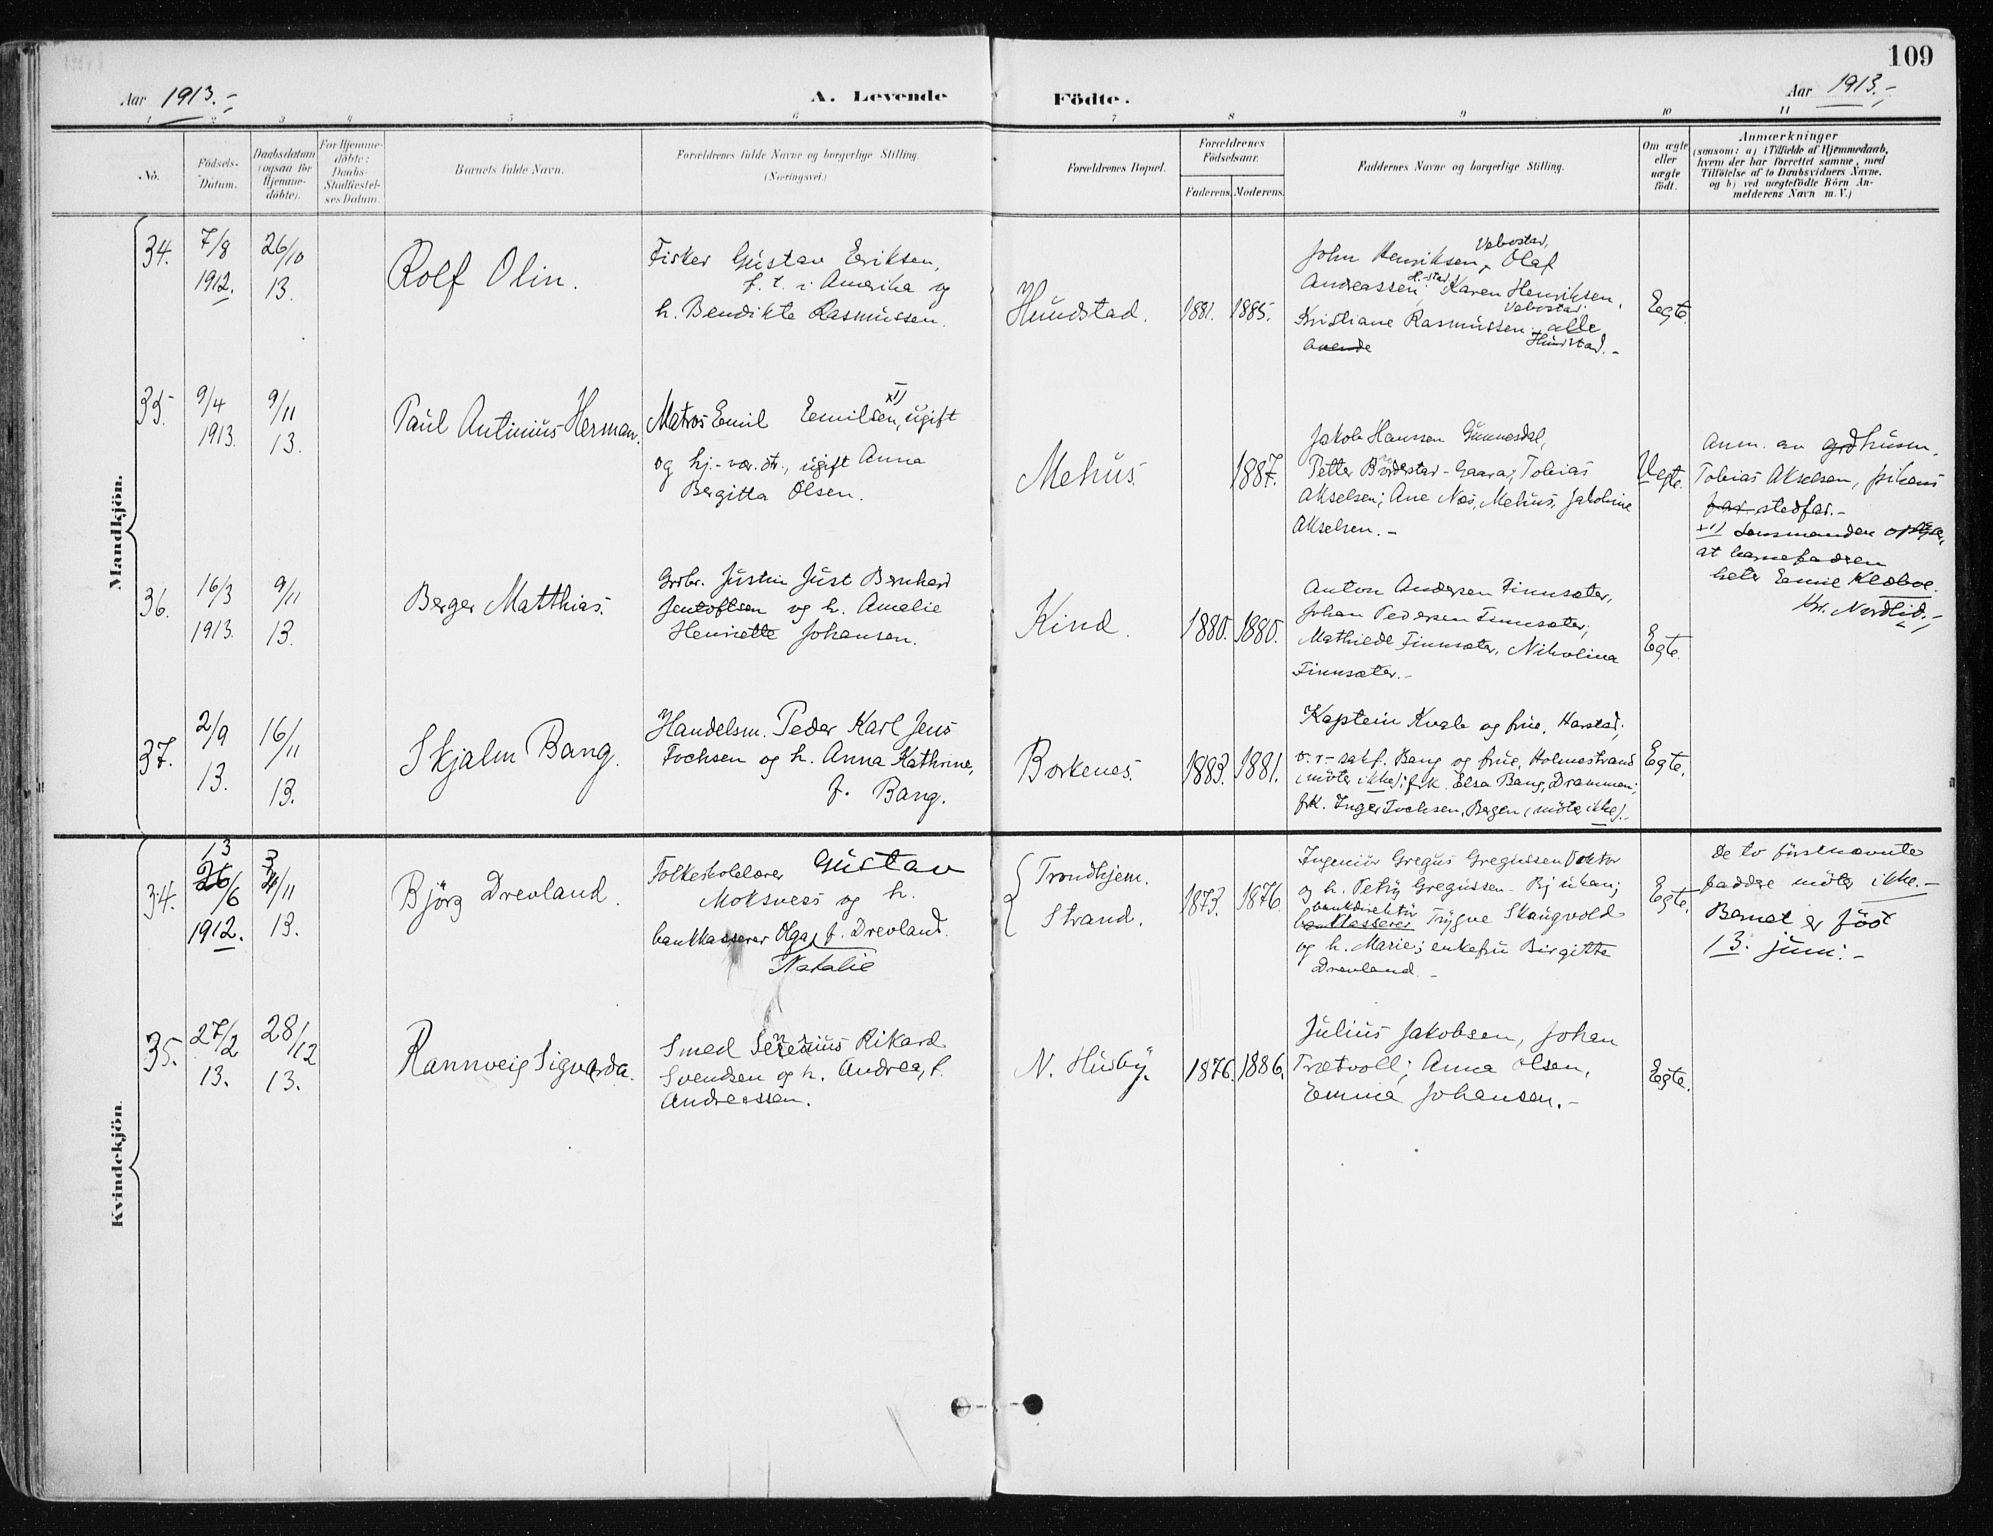 109
Aar 1913.-
A. Levende Födte.
Aar 1913.-
1 2 3 4 5 6 7 8 9 10 11
No.
Födsels-
Datum.
Daabsdatum
(ogsaa for
Hjemme-
döbte).
For Hjemme-
döbte:
Daabs-
Stadfæstel-
ses Datum.
Barnets fulde Navn.
Forældrenes fulde Navne og borgerlige Stilling.
(Næringsvei.)
Forældrenes Bopæl.
Forældrenes
Födselsaar.
Faderens. Moderens.
Faddernes Navne og borgerlige Stilling.
Om ægte
eller
uægte
födt.
Anmærkninger
(saasom: a) i Tilfælde af Hjemmedaab,
hvem der har forrettet samme, med
Tilföielse af to Daabsvidners Navne,
og b) ved uægtefödte Börn An-
melderens Navn m. V.)
Mandkjön.
34.
7/8
1912.
26/10
13.
Rolf Olin.
Fisker Gustav Eriksen,
f. t. i Amerika og
h. Bendikte Rasmussen.
Hundstad.
1881. 1885.
Vebostad,
John Henriksen, Olaf
Andreassen, H-stad, Karen Henriksen,
Vebostad
Kristiane Rasmussen alle
Hundstad.-
Egte.
35.
9/4
1913.
9/11
13.
Paul Antinius Herman.
x1)
Matros Emil Emilsen, ugift
og hj.-vær. dt., ugift Anna
Bergitta Olsen.
Mehus.
1887.
Jakob Hanssen Gunnesdal,
Petter Bordestad-Gaara; Tobias
Akselsen; Ane Næs, Mehus, Jakobine
Akselsen.-
Uegte.
Anm. av husm.
Tobias Akselsen, pikens
far stedfar.-
x1) Lensmanden oplyser,
at barnefaderen
heter Emil Klæboe.
Nordlid.-
36.
16/3
1913.
9/11
13.
Berger Matthias.
Grdbr. Justin Just Bernhard
Jentoftsen og h. Amalie
Henriette Johansen.
Kind.
1880. 1880.
Anton Andersen Finnsæter,
Johan Pedersen Finnsæter;
Mathilde Finnsæter, Nikolina
Finnsæter.-
Egte.
37.
2/9
13.
16/11
13.
Skjalm Bang.
Handelsm. Peder Karl Jens
Tochsen og h. Anna Kathrine,
f. Bang.
Borkenes.
1883. 1881.
Kaptein Kvale og frue, Harstad;
o.r-sakf. Bang og frue, Holmestrand
(möter ikke); frk. Elsa Bang, Drammen;
frk. Inger Tochsen, Bergen (möter ikke).-
Egte.
Kvindekjön.
34.
13
26/6
1912.
3
4/11
13.
Björg Drevland.
Folkeskolelærer Gustav
Moksness og h.
bankkasserer Olga, f. Drevland.
Natalie
Trondhjem.
Strand.
1873. 1876.
Ingeniör Gregus Gregussen Doktor
og h. Petry Gregussen - Rjukan;
bankdirektör
bankkasserer Trygve Skaugvold
og h. Marie; enkefru Birgitte
Drevland.-
Egte.
De to förstnævnte
faddre möter ikke.-
Barnet er föd
13. juni.-
35.
27/2
13.
28/12
13.
Rannveig Sigvarda.
Smed Serenius Rikard
Svendsen og h. Andrea, f.
Andreassen.
N. Husby.
1876. 1886.
Julius Jakobsen, Johan
Trætvoll; Anna Olsen,
Emma Johansen.-
Egte.